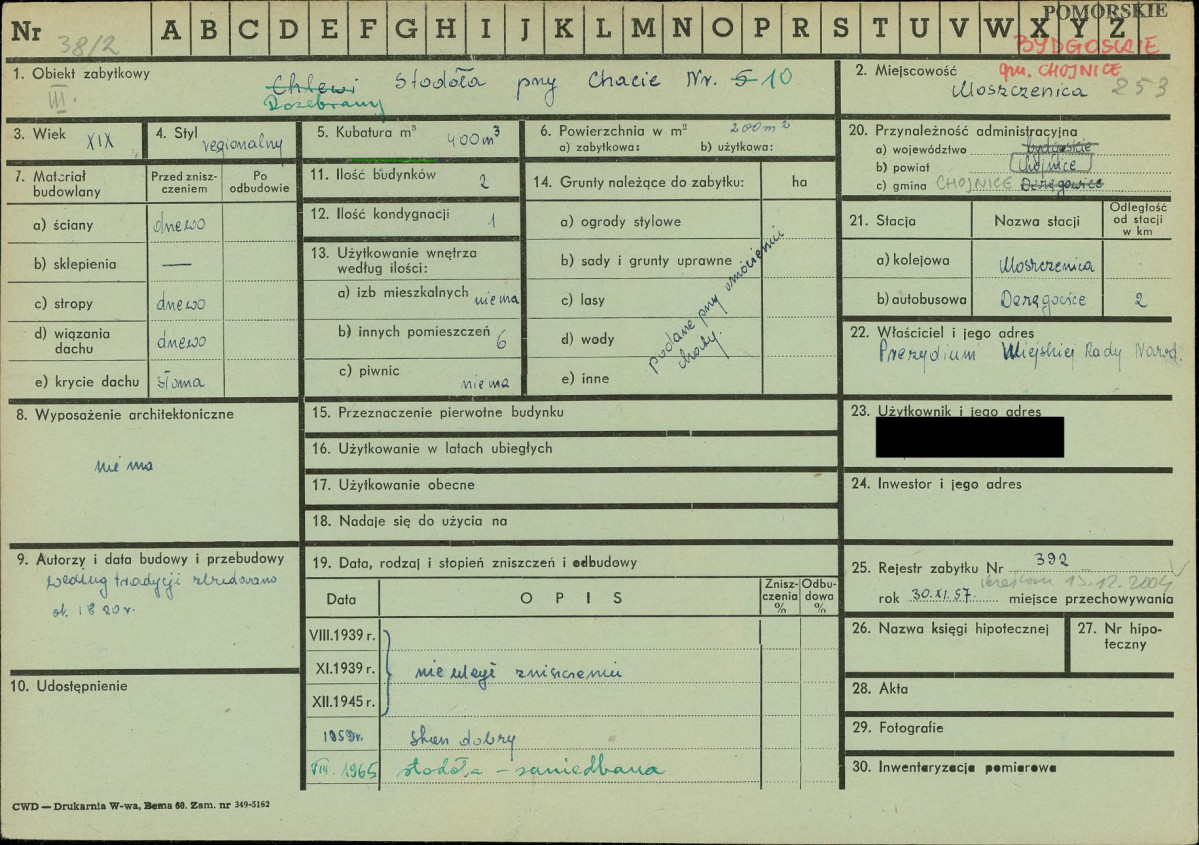 POMORSKIE
Nr 38/2 A B C D E F G H I J K L M N O P R S T U V W X Y Z
BYDGOSKIE
gm. CHOJNICE
1. Obiekt zabytkowy
Chlewi Stodoła przy Chacie Nr. 5 10
III.
Rozebrany
2. Miejscowość
Moszczenica 253
3. Wiek XIX
4. Styl regionalny
5. Kubatura m³ 400m³
6. Powierzchnia w m² 200m²
a) zabytkowa: b) użytkowa:
7. Materiał budowlany
Przed zniszczeniem
Po odbudowie
a) ściany drewo
b) sklepienia —
c) stropy drewo
d) wiązania dachu drewo
e) krycie dachu słoma
8. Wyposażenie architektoniczne
nie ma
9. Autorzy i data budowy i przebudowy
według tradycji zbudowano
ok. 1820r.
10. Udostępnienie
11. Ilość budynków 2
12. Ilość kondygnacji 1
13. Użytkowanie wnętrza
według ilości:
a) izb mieszkalnych nie ma
b) innych pomieszczeń 6
c) piwnic nie ma
14. Grunty należące do zabytku: ha
a) ogrody stylowe
b) sady i grunty uprawne
c) lasy
d) wody
e) inne
podane przy
chaty.
15. Przeznaczenie pierwotne budynku
16. Użytkowanie w latach ubiegłych
17. Użytkowanie obecne
18. Nadaje się do użycia na
19. Data, rodzaj i stopień zniszczeń i odbudowy
Data OPIS Zniszczenia % Odbudowa %
VIII.1939 r.
XI.1939 r. nie uległ zniszczeniu
XII.1945 r.
1959r. stan dobry
VIII. 1965 stodoła – zaniedbana
20. Przynależność administracyjna
a) województwo bydgoskie
b) powiat Chojnice
c) gmina CHOJNICE Deręgowice
21. Stacja Nazwa stacji Odległość od stacji w km
a) kolejowa Moszczenica
b) autobusowa Deręgowice 2
22. Właściciel i jego adres
Prezydium Miejskiej Rady Narod.
23. Użytkownik i jego adres
24. Inwestor i jego adres
25. Rejestr zabytku Nr 392
13.12.2004
rok 30.XI.57. miejsce przechowywania
26. Nazwa księgi hipotecznej
27. Nr hipoteczny
28. Akta
29. Fotografie
30. Inwentaryzacja pomiarowa
CWD — Drukarnia W-wa, Bema 60. Zam. nr 349-5162